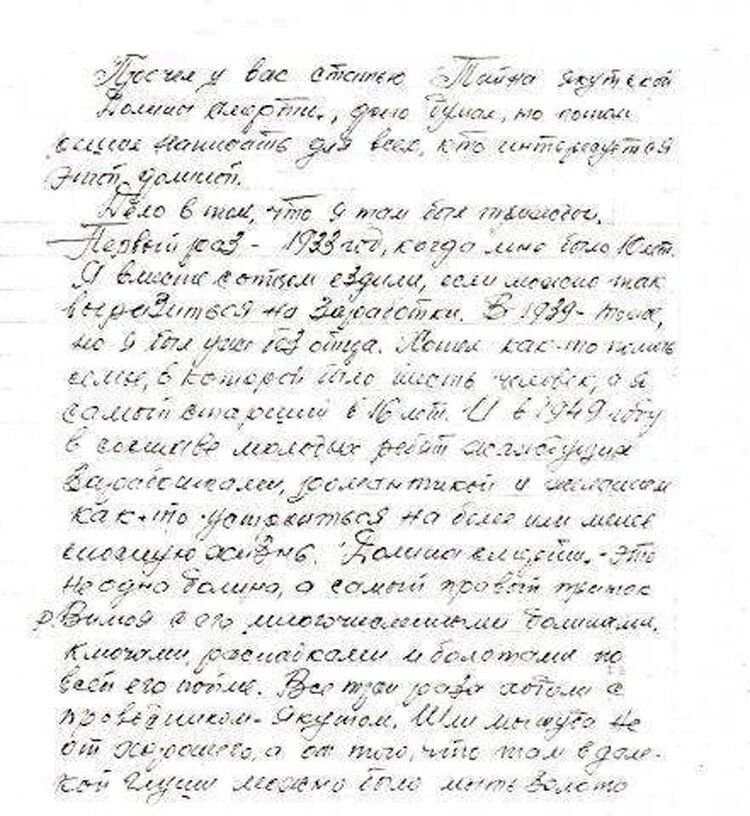 Прочел у вас статью "Тайна якутской
Долины смерти", долго думал, но потом
решил написать для всех, кто интересуется
этой долиной.
Дело в том, что я там был трижды.
Первый раз - 1933 год, когда мне было 10 лет.
Я вместе с отцом ездили, если можно так
выразиться на заработки. В 1939 - тоже,
но я был уже без отца. Пошел как-то помочь
семье, в которой было шесть человек, а я
самый старший в 16 лет. И в 1949 году
в составе молодых ребят
заработками, романтикой и желанием
как-то устроиться на более или менее
сносную жизнь. "Долина смерти" - это
не одна долина, а самый правый приток
р. Вилюя с его многочисленными долинами,
ключами, распадками и болотами по
всей его пойме. Все три раза ходили с
проводником-якутом. Шли мы туда не
от хорошего, а от того, что там в дале-
кой глуши можно было мыть золото